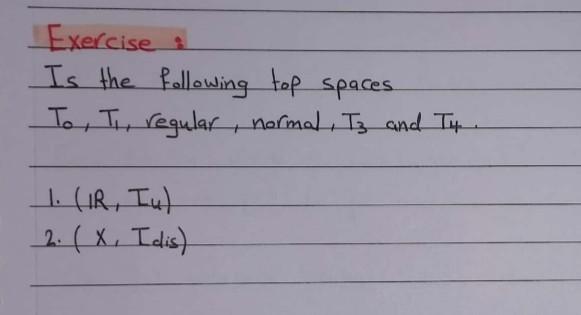 Exercise :
Is the following top spaces
T₀, T₁, regular, normal, T₃ and T₄.
1. (ℝ, Iu)
2. (X, Idis)